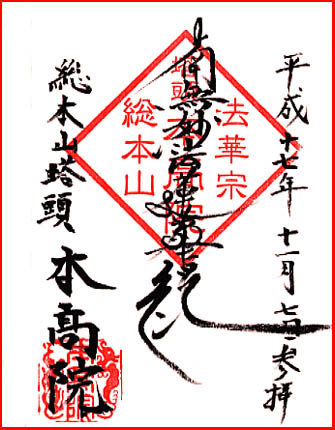 平成十七年十一月七日参拝
南無妙法蓮華経
法華宗
塔頭本高院
総本山
総本山塔頭 本髙院